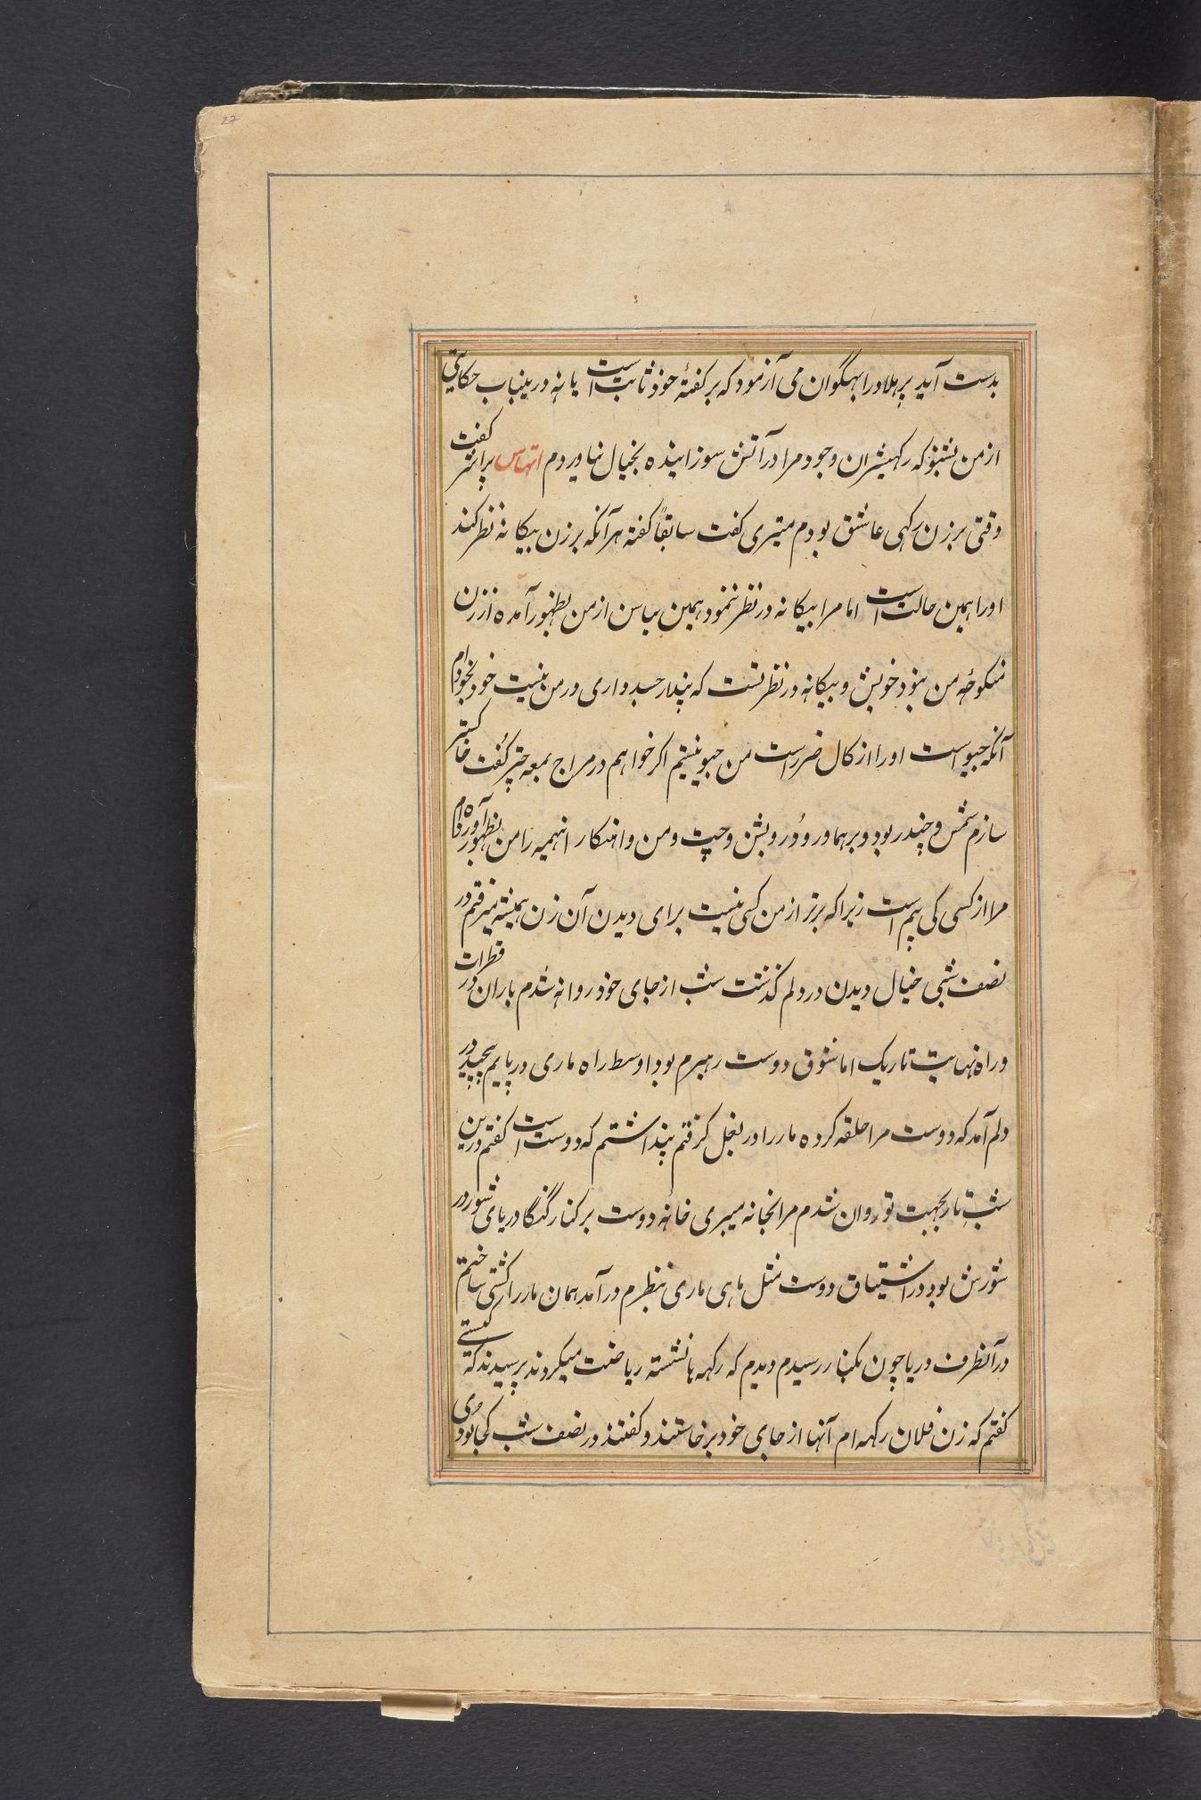 27
بدست آید پرهلاد را بهگوان می آزمود که بر گفتهٔ خود ثابت است یا نه درینباب حکایتی
از من بشنو که رکهیشران وجود مرا در آتش سوزانیده بخیال نیاوردم اتهاس پراشر گفت
وقتی بر زن رکهی عاشق بودم میتری گفت سابقاً گفته هر آنکه بر زن بیکانه نظر کند
اورا همین حالت است اما مرا بیکانه در نظر ننمود همین سان از من بظهور آمده از زن
منکوحهٔ من بنود خویش و بیکانه در نظر تست که پندار جسد داری در من نیست خود بخود ام
آنکه جیو است اورا از کال ضرر است من جیو نیستم اکر خواهم در مراج بمعه چتر گفت خاکستر
سازم شمس و چندر بود و برهما و رودر و بشن و چت و من و اهنکار اینهمه را من بظهور آورده ام
مرا از کسی کی بیم است زیرا که برتر از من کسی نیست برای دیدن آن زن همیشه میرفتم در
نصف شبی خیال دیدن در دلم گذشت شب از جای خود روانه شدم باران در قطرات
و راه نهایت تاریک اما شوق دوست رهبرم بود اوسط راه ماری در پایم پیچید در
دلم آمد که دوست مرا حلقه کرده مار را در بغل گرفتم پنداشتم که دوست است گفتم درین
شب تار بجهت تو روان شدم مرا بخانه میبری خانه دوست بر کنار گنگا دریای شور در
شورش بود در اشتیاق دوست مثل ماهی ماری بنظرم در آمد همان مار را کشتی ساختم
در آنطرف دریا چون بکنار رسیدم دیدم که رکهه ها نشسته ریاضت میکردند پرسیدند که کیستی
گفتم که زن فلان رکهه ام آنها از جای خود برخاستند و گفتند در نصف شب کجا بودی